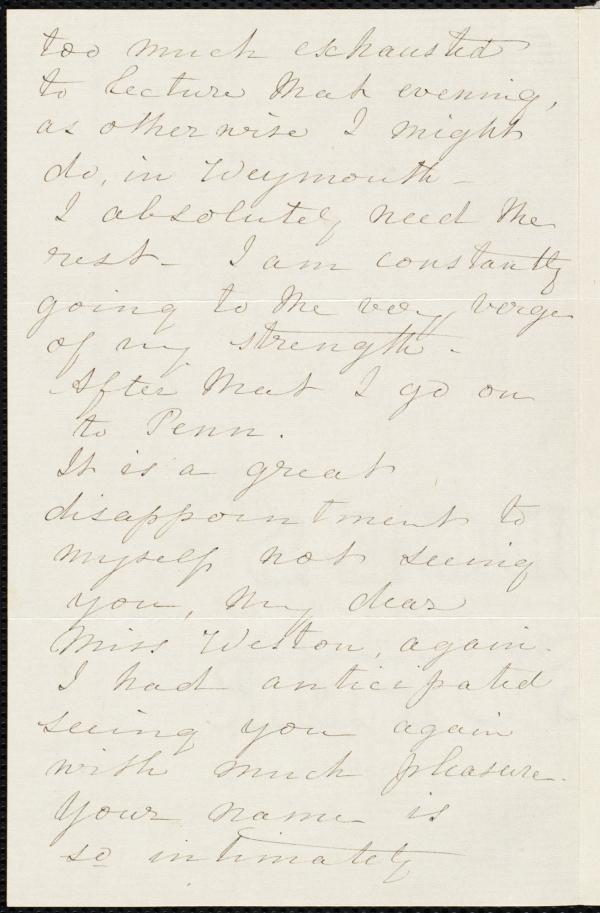 too much exhausted
to lecture that evening,
as otherwise I might
do, in Weymouth -
I absolutely need the
rest - I am constantly
going to the very verge
of my strength.
After that I go on
to Penn.
It is a great
disappointment to
myself not seeing
you, my dear
Miss Weston, again.
I had anticipated
seeing you again
with much pleasure.
Your name is
so intimately